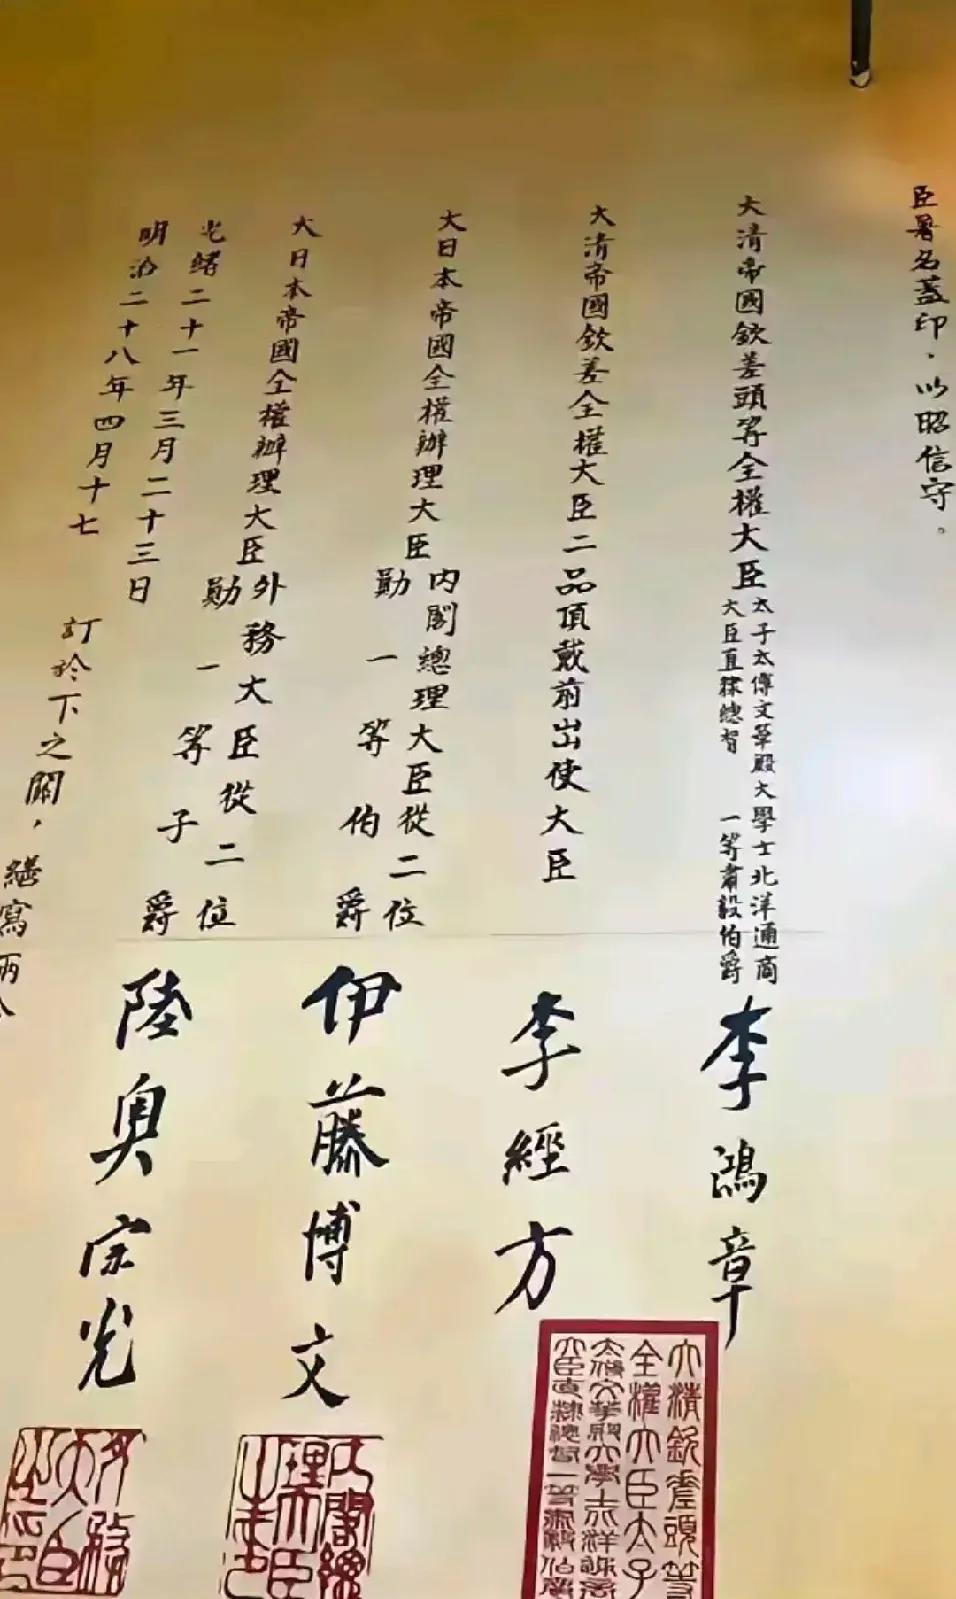 臣署名蓋印，以昭信守。
大清帝國欽差頭等全權大臣
太子太傅文華殿大學士北洋通商
大臣直隸總督 一等肅毅伯爵
李鴻章
大清帝國欽差全權大臣二品頂戴前出使大臣
李經方
大日本帝國全權辦理大臣
內閣總理大臣從二位
勳一等伯爵
伊藤博文
大日本帝國全權辦理大臣
外務大臣從二位
勳一等子爵
陸奧宗光
光緒二十一年三月二十三日
明治二十八年四月十七
訂於下之關，繕寫兩
大清欽差頭等
全權大臣太子
太傅文華殿大學士北洋通商
大臣直隸總督一等肅毅伯爵
內閣總
理大臣
之印
外務
大臣
之印